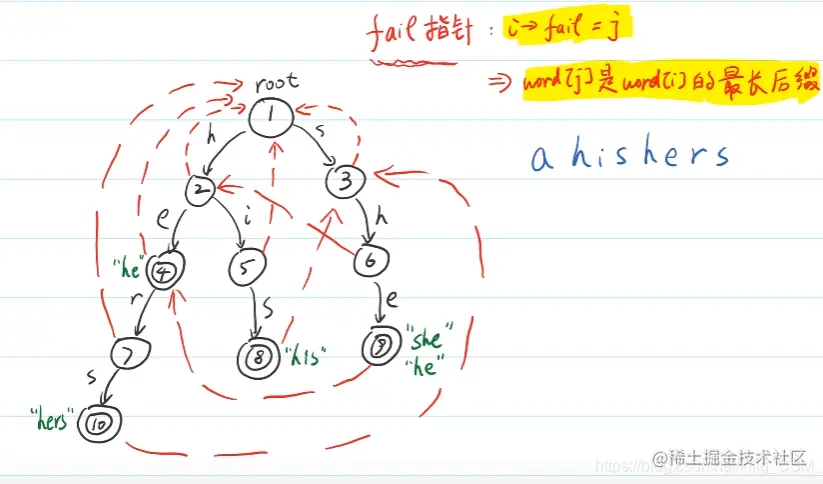 fail指针:i→fail=j
⇒ word[j]是word[i]的最长后缀
root
1
h
s
a h i s h e r s
2
3
e
i
h
"he"
4
5
6
r
s
e
7
8
"his"
9
"she"
"he"
s
"hers"
10
@稀土掘金技术社区